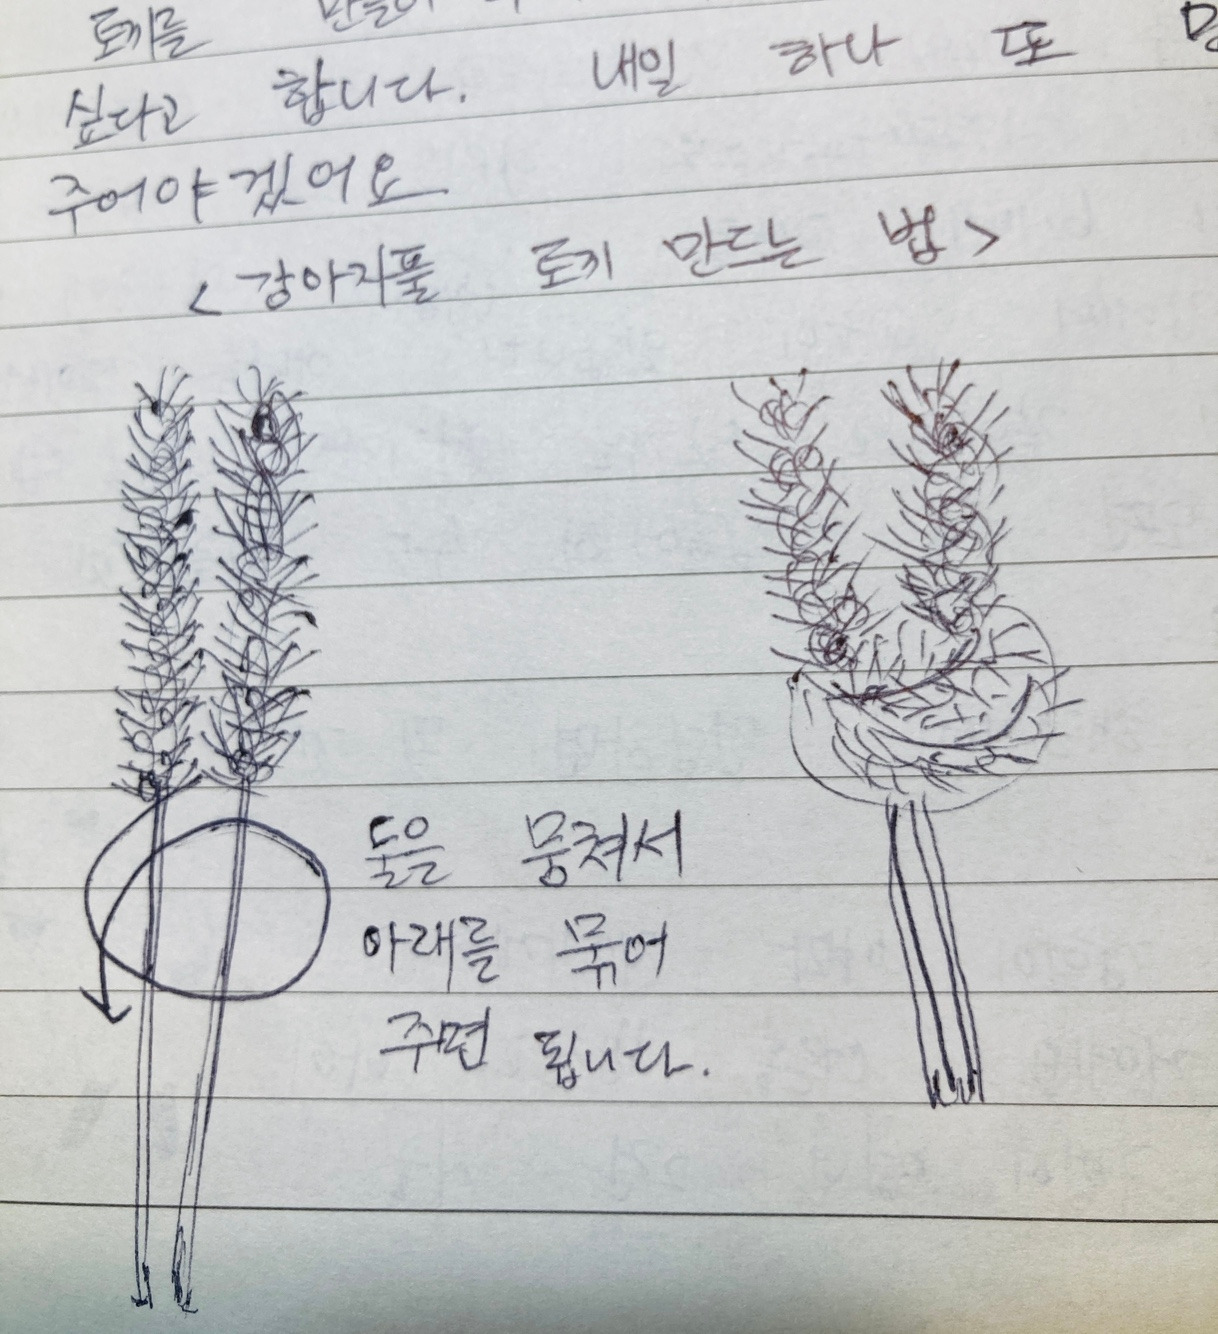 토끼를 만들어
싶다고 합니다. 내일 하나 또
주어야겠어요
<강아지풀 토끼 만드는 법>
둘을 뭉쳐서
아래를 묶어
주면 됩니다.